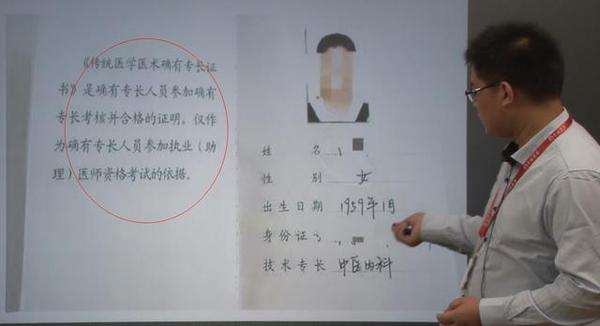 《传统医学医术确有专长证
书》是确有专长人员参加确有
专长考核并合格的证明。仅作
为确有专长人员参加执业（助
理）医师资格考试的依据。
姓 名
性 别 女
出生日期 1959年1月
身份证
技术专长 中医内科